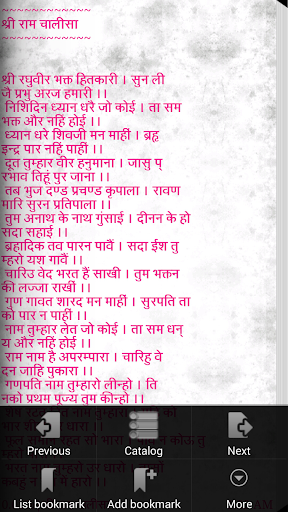 ~~~~~~~~~~~~
श्री राम चालीसा
~~~~~~~~~~~~
श्री रघुवीर भक्त हितकारी । सुन ली
जै प्रभु अरज हमारी ।।
निशिदिन ध्यान धरै जो कोई । ता सम
भक्त और नहिं होई ।।
ध्यान धरे शिवजी मन माहीं । ब्रह्म
इन्द्र पार नहिं पाहीं ।।
दूत तुम्हार वीर हनुमाना । जासु प्
रभाव तिहूं पुर जाना ।।
तब भुज दण्ड प्रचण्ड कृपाला । रावण
मारि सुरन प्रतिपाला ।।
तुम अनाथ के नाथ गुंसाई । दीनन के हो
सदा सहाई ।।
ब्रहादिक तव पारन पावैं । सदा ईश तु
म्हरो यश गावैं ।।
चारिउ वेद भरत हैं साखी । तुम भक्तन
की लज्जा राखीं ।।
गुण गावत शारद मन माहीं । सुरपति ता
को पार न पाहीं ।।
नाम तुम्हार लेत जो कोई । ता सम धन्
य और नहिं होई ।।
राम नाम है अपरम्पारा । चारिहु वे
दन जाहि पुकारा ।।
गणपति नाम तुम्हारो लीन्हो । ति
नको प्रथम पूज्य तुम कीन्हो ।।
Previous
Catalog
Next
List bookmark
Add bookmark
More